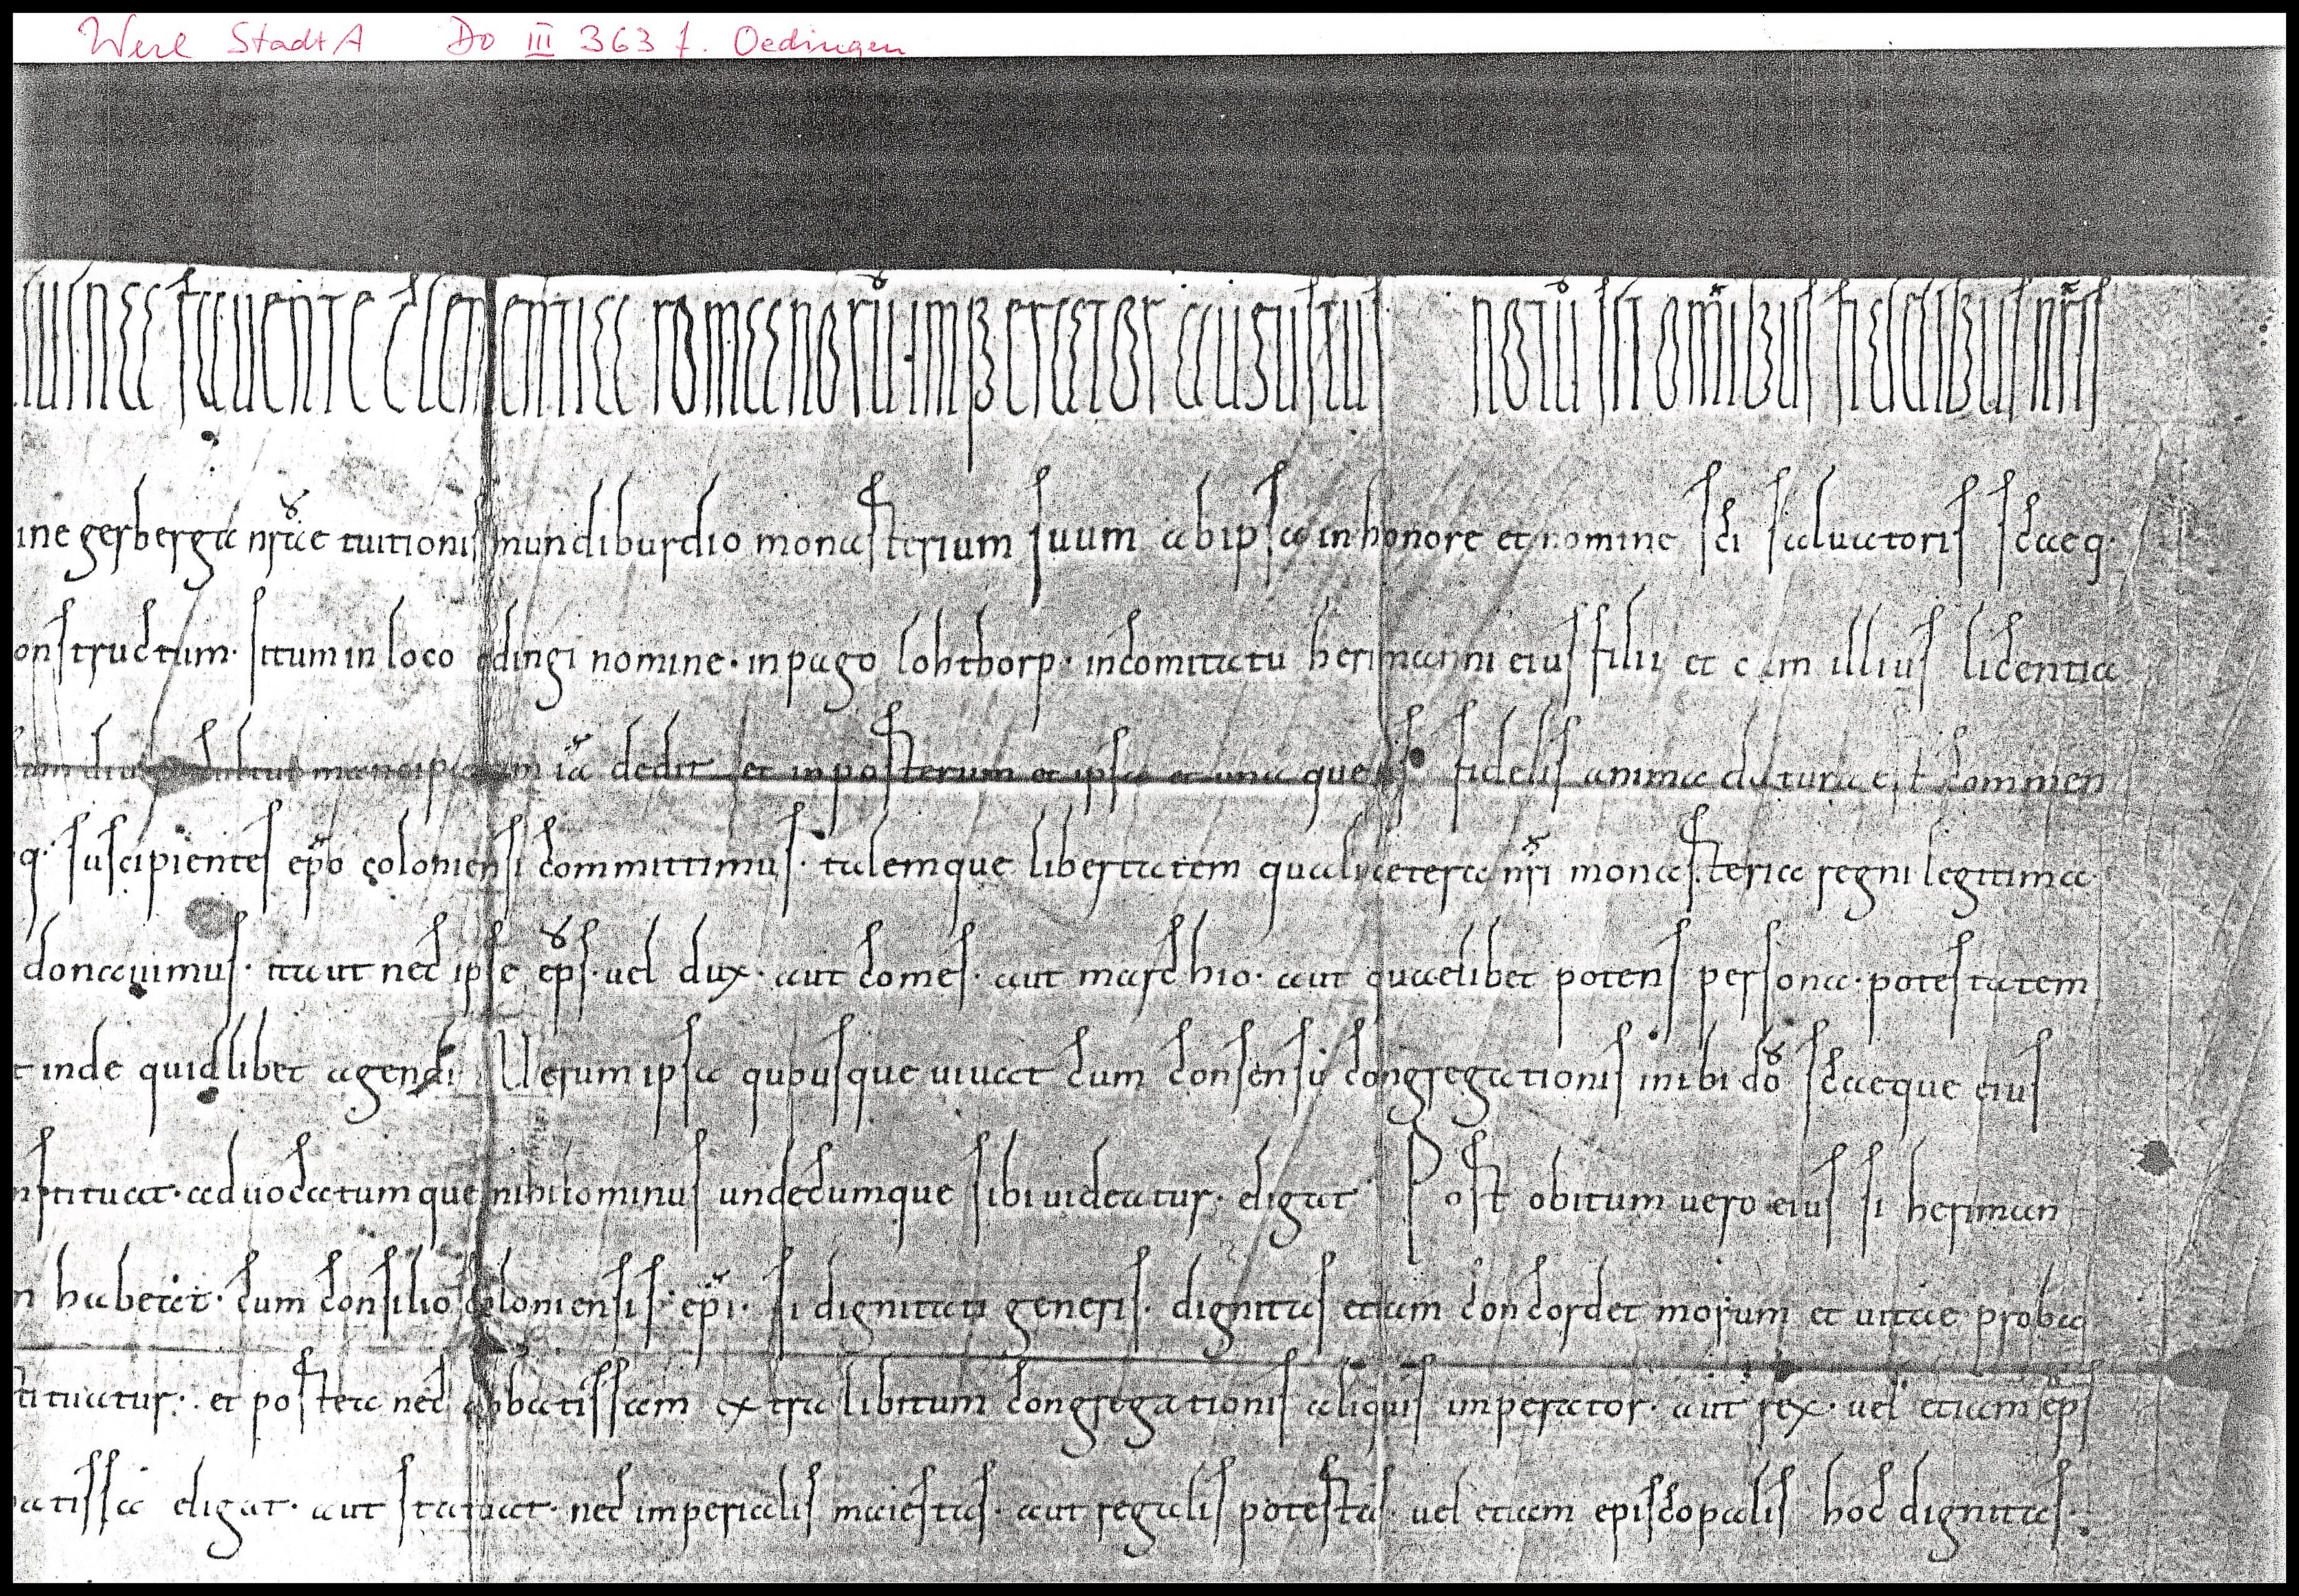 Werl StadtA DO III 363 f. Oedingen
fauente clementia romanorū imperator augustus notū sit om̄ibus fidelibus nr̄is
ine gerberga nr̄ae tuitionis mundiburdio monasterium suum ab ipsa in honore et nomine sc̄i saluatoris sc̄aeq·
onstructum· situm in loco odingi nomine· in pago lohthorp· in comitatu herimanni eius filii et cum illius licentia
mancipia om̄ia dedit et in posterum et ipsa et una quęque fidelis anima datura est commen
q· suscipientes ep̄o coloniensi committimus· talemque libertatem qualī cetera nr̄i monasteria regni legitima
donauimus· ita ut nec ipse ep̄s· uel dux· aut comes· aut marchio· aut quaelibet potens persona· potestatem
t inde quidlibet agendi Uerum ipsa quousque uiuat cum consensū congregationis inibi dō sc̄aeque eius
nstituat· aduocatumque nihilominus undecumque sibi uideatur· eligat Post obitum uero eius si heriman
n habeat· cum consilio coloniensis· ep̄i· si dignitati generis· dignitas etiam concordet morum et uitae proba
tituatur· et postea nec abbatissam extra libitum congregationis aliquis imperator· aut rex· uel etiam ep̄s
atissa eligat· aut statuat· nec imperialis maiestas· aut regalis potestas· uel etiam episcopalis hoc dignitas·